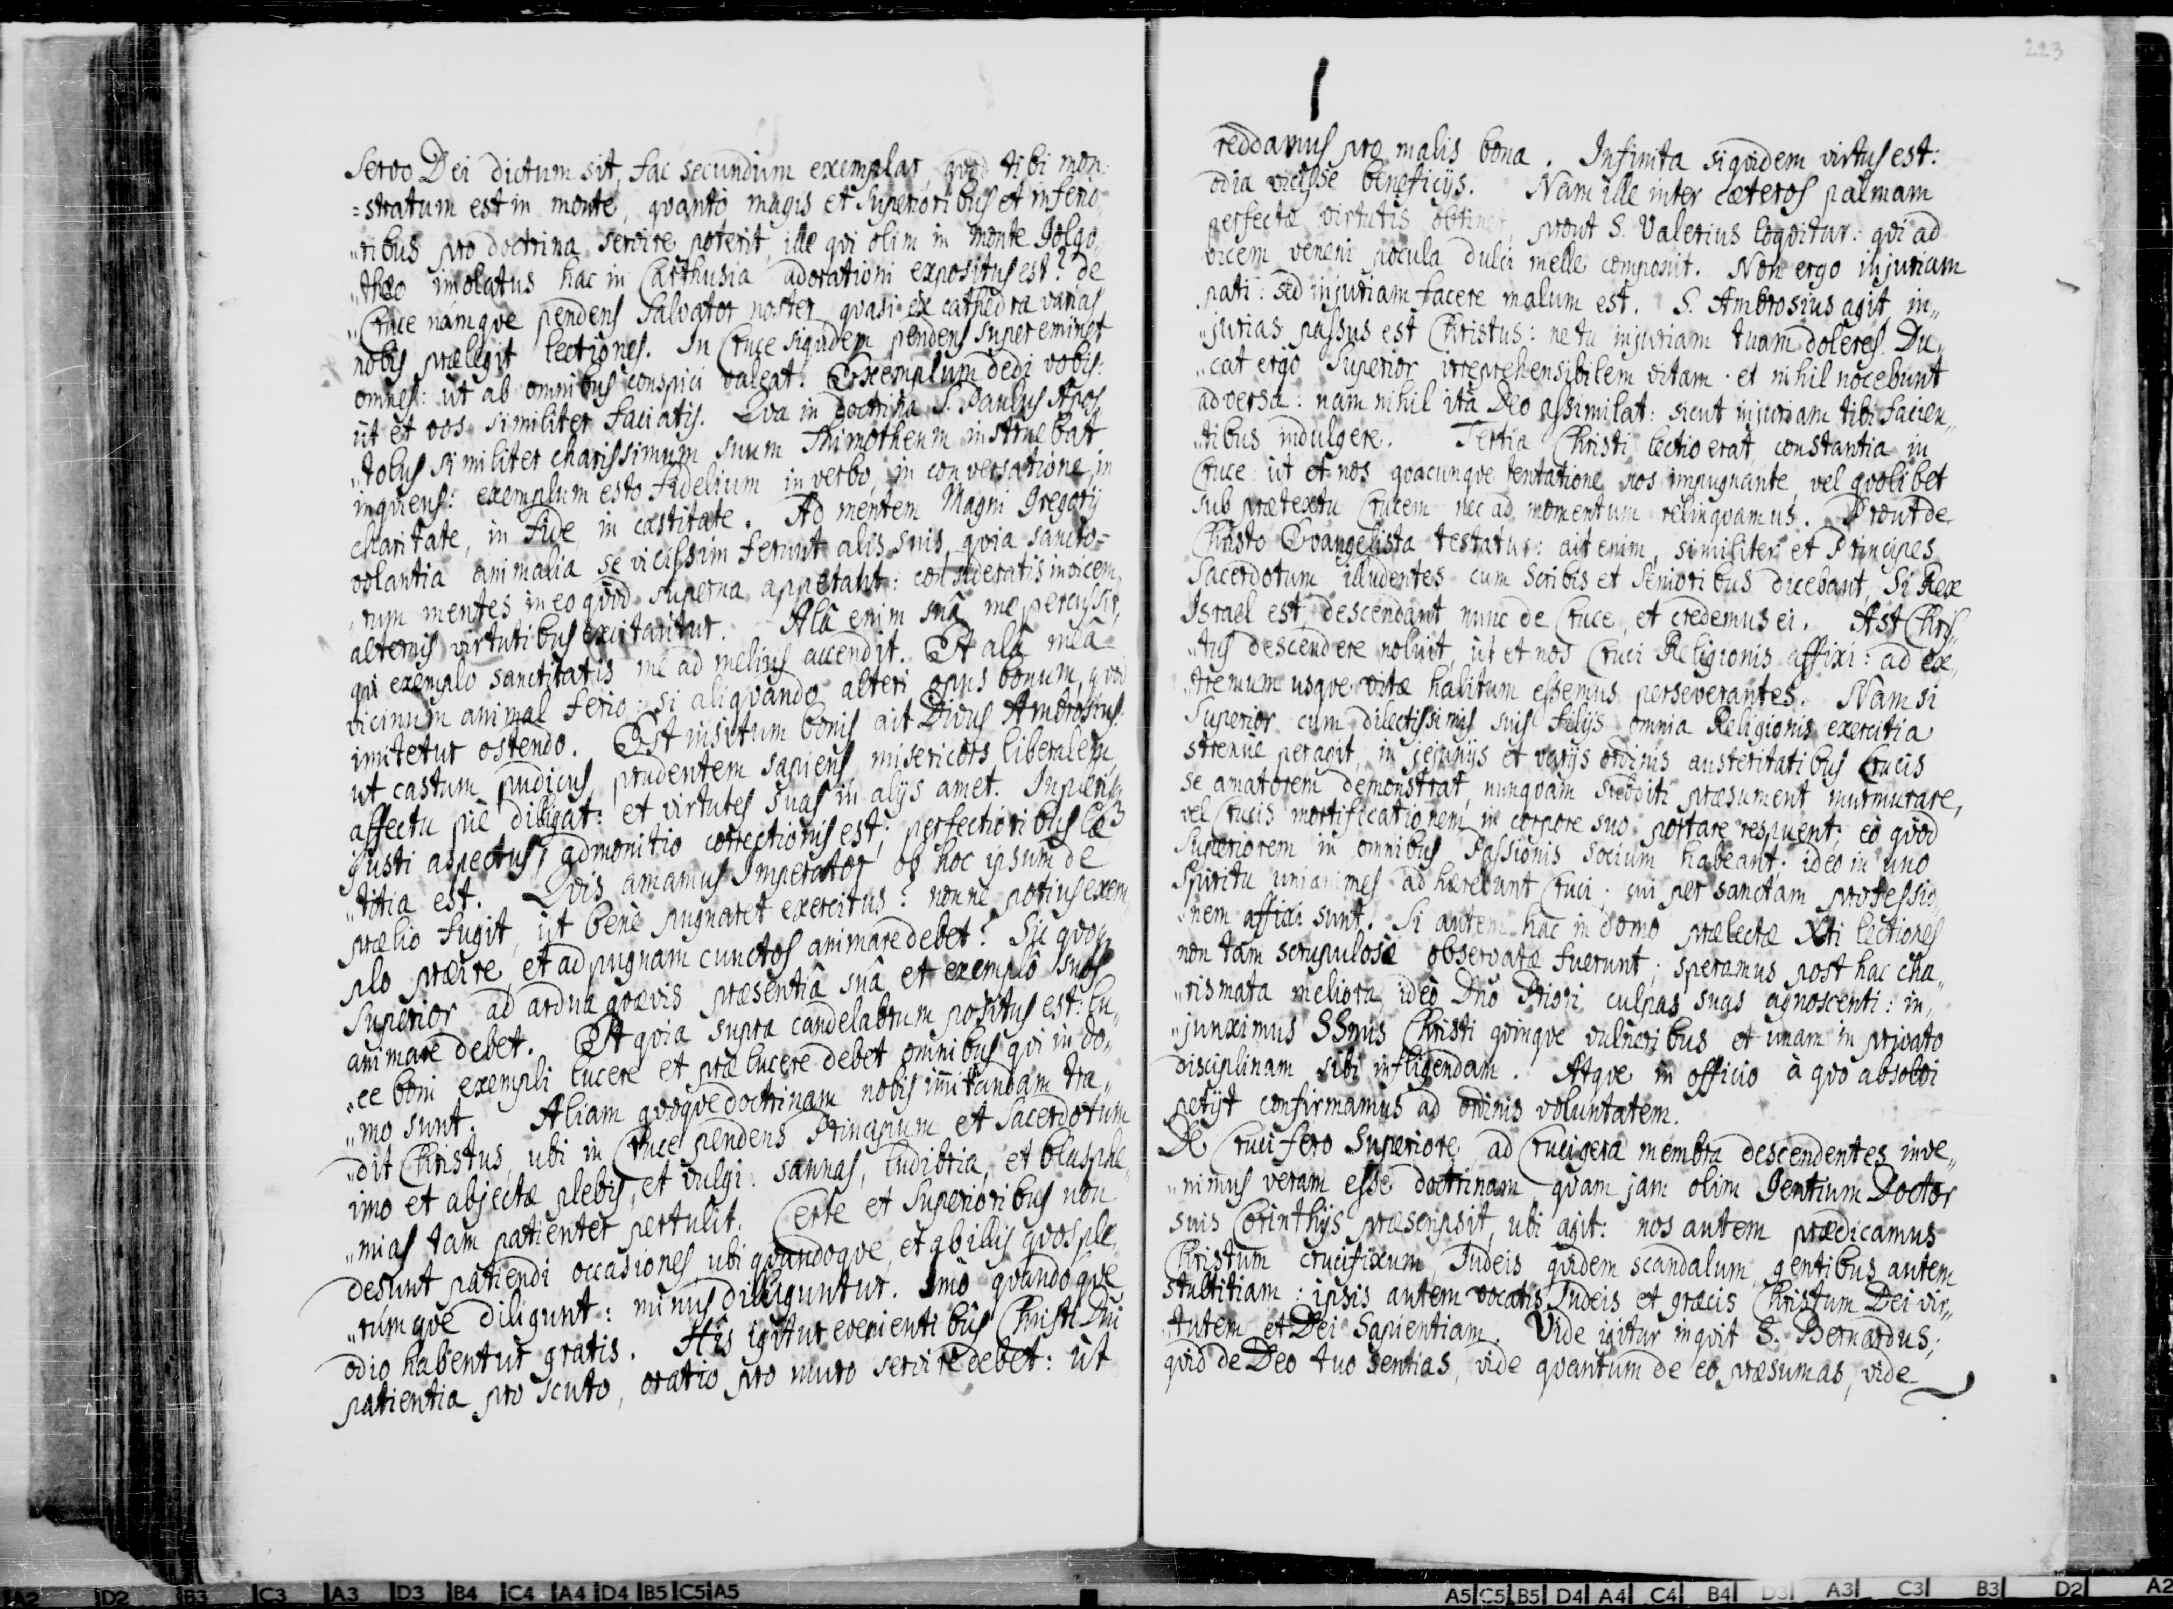 Servo Dei dictum sit, fac secundum exemplar, qvod tibi mon:
=stratum est in monte, qvanto magis et Superioribus et inferio
„ribus pro doctrina servire poterit, ille qvi olim in monte Golgo„
„theo imolatus hac in Carthusia adorationi expositus est? de
„Cruce námqve pendens Salvator noster qvasi ex cathedra varias
nobis prælegit lectiones. In Cruce siqvidem pendens supereminet
omnes: ut ab omnibus conspici valeat. Exemplum dedi vobis:
ut et vos similiter faciatis. Qva in doctrina S. Paulus Apos„
„tolus similiter charissimum suum Thimotheum instruebat
inqviens: exemplum esto fidelium in verbo, in conversatione, in
charitate, in fide, in castitate. Ad mentem Magni Gregorij
volantia animalia se vicissim feriunt alis suis, qvia sancto=
„rum mentes in eo qvòd superna appetant: consideratis invicem
alternis virtutibus excitantur. Alâ enim suâ me percussit,
qvi exemplo sanctitatis me ad melius accendit. Et alâ meâ
vicinum animal ferio: si aliqvando alteri opus bonum, qvod
imitetur ostendo. Est insitum bonis ait Divus Ambrosius
ut castum pudicus, prudentem sapiens, misericors liberalem
affectu piè diligat: et virtutes suas in alijs amet.
justi aspectus, admonitio correctionis est; perfectioribus læ
„titia est. Qvis amamus Imperator ob hoc ipsum de
prælio fugit, ut benè pugnaret exercitus? nonne potius exem
plo præire, et ad pugnam cunctos animare debet? Sic qvoq
Superior ad ardua qvævis præsentiâ suâ et exemplô suos
animare debet. Et qvia supra candelabrum positus est: lu„
„ce boni exempli lucere et prælucere debet omnibus qvi in do„
„mo sunt. Aliam qvoqve doctrinam nobis imitandam tra„
„dit Christus, ubi in Cruce pendens Principum et Sacerdotum
imo et abjectæ plebis, et vulgi sannas, ludibria, et blasphe„
„mias tam patienter pertulit. Certe et Superioribus non
desunt patiendi occasiones, ubi qvandoqve, et ab illis qvos ple„
„rúmqve diligunt: minus diliguntur. Imò qvandoqve
odio habentur gratis. His igitur evenientibus Christi Dni
patientia pro scuto, oratio pro muro servire debet: ut
223
reddamus pro malis bona. Infinita siqvidem virtus est:
odia vicisse beneficijs. Nam ille inter cæteros palmam
perfectæ virtutis obtinet, prout S. Valerius loqvitur: qvi ad
vicem veneni pocula dulci melle componit. Non ergo injuriam
pati: sed injuriam facere malum est. S. Ambrosius agit, in„
„jurias passus est Christus: ne tu injuriam tuam doleres. Du„
„cat ergo Superior irreprehensibilem vitam et nihil nocebunt
adversa: nam nihil ita Deo assimilat: sicut injuriam tibi facien„
„tibus indulgere. Tertia Christi lectio erat constantia in
Cruce ut et nos qvacunqve tentatione nos impugnante, vel qvolibet
sub prætextu Crucem nec ad momentum relinqvamus. Prout de
Christo Evangelista testatur: ait enim, similiter et Principes
Sacerdotum illudentes cum Scribis et Senioribus dicebant, Si Rex
Israel est, descendant nunc de Cruce, et credemus ei. Ast Chris„
„tus descendere noluit, ut et nos Cruci Religionis affixi: ad ex„
„tremum usqve vitæ halitum essemus perseverantes. Nam si
Superior cum dilectissimis suis filijs omnia Religionis exercitia
strenuè peragit, in jejunijs et varijs ordinis austeritatibus Crucis
se amatorem demonstrat, nunqvam subditi præsument murmurare,
vel Crucis mortificationem in corpore suo portare respuent, eò qvòd
Superiorem in omnibus Passionis socium habeant; ideo in uno
Spiritu unianimes adhærebunt Cruci; cui per sanctam professio„
„nem affixi sunt. Si autem hac in domo prælectæ Xti lectiones
non tam scrupulosè observatæ fuerunt; speramus post hac cha„
„rismata meliora ideò Dnô Priori culpas suas agnoscenti: in„
„junximus SSmis Christi qvinqve vulneribus et unam in privato
disciplinam sibi infligendam. Atqve in officio à qvo absolvi
petijt confirmamus ad ordinis voluntatem.
De Crucifero Superiore ad Crucigera membra descendentes inve„
„nimus veram esse doctrinam qvam jam olim Gentium Doctor
suis Corinthijs præscripsit, ubi agit: nos autem prædicamus
Christum crucifixum, Judeis qvidem scandalum, gentibus autem
stultitiam: ipsis autem vocatis Judeis et græcis Christum Dei vir„
tutem et Dei Sapientiam. Vide igitur inqvit S. Bernardus;
qvid de Deo tuo sentias, vide qvantum de eo præsumas, vide
A2 D2 B3 C3 A3 D3 B4 C4 A4 D4 B5 C5 A5
A5 C5 B5 D4 A4 C4 B4 D3 A3 C3 B3 D2 A2